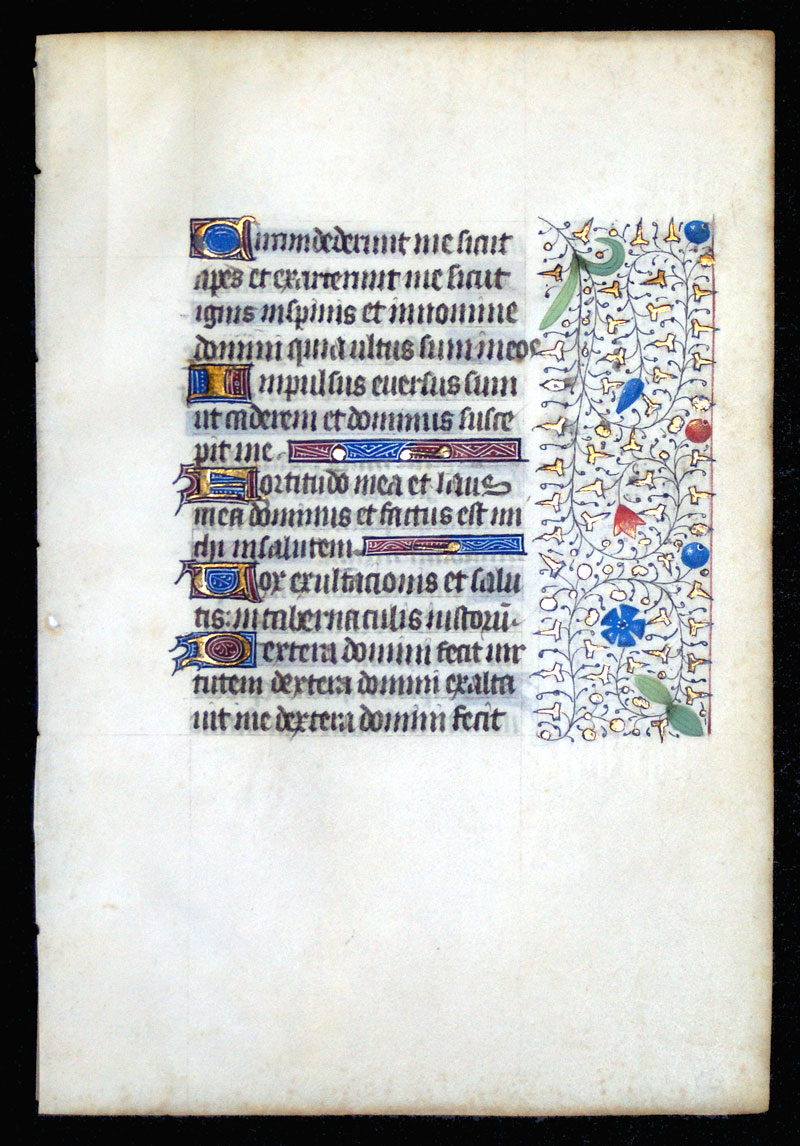 Circumdederunt me sicut
apes et exarserunt me sicut
ignis in spinis et in nomine
domini quia ultus sum in eos
Inpulsus eversus sum
ut caderem et dominus susce
pit me
Fortitudo mea et laus
mea dominus et factus est mi
chi in salutem
Vox exultacionis et salu
tis: in tabernaculis iustorū
Dextera domini fecit vir
tutem dextera domini exalta
vit me dextera domini fecit